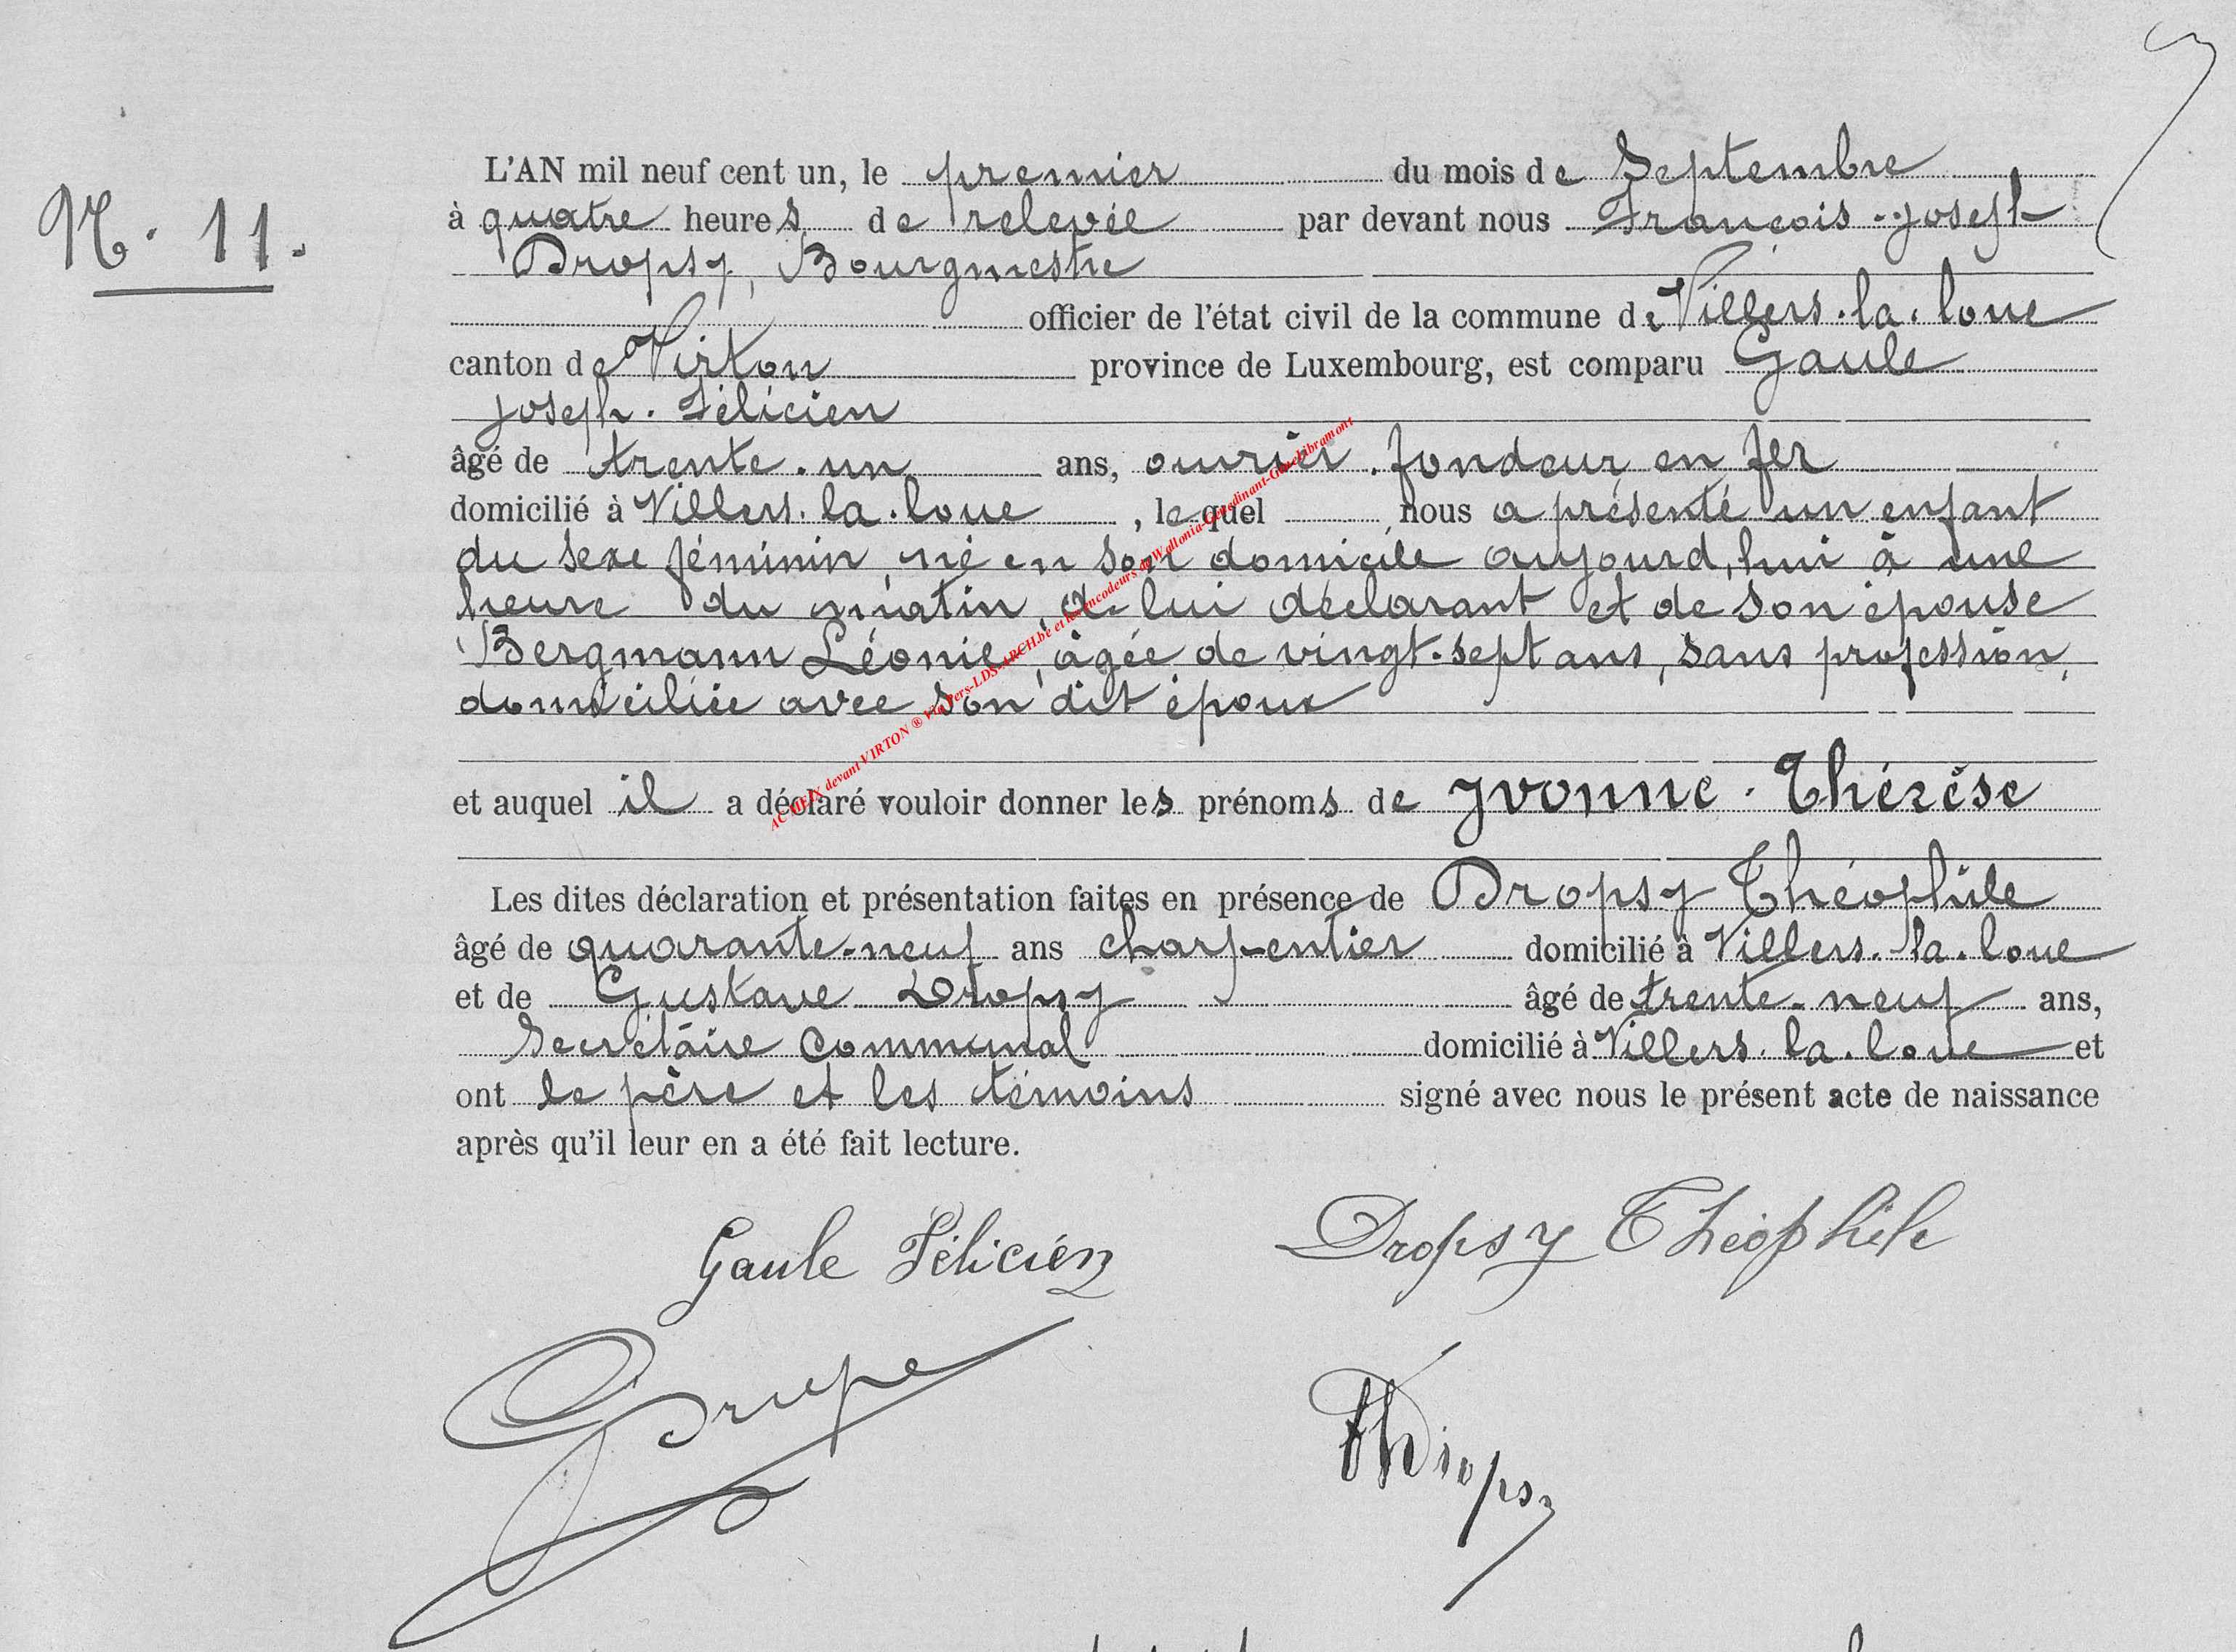 N. 11.
L'AN mil neuf cent un, le premier du mois de Septembre
à quatre heures de relevée par devant nous François-Joseph
Dropsy, Bourgmestre
officier de l'état civil de la commune de Villers-la-loue
canton de Virton province de Luxembourg, est comparu Gaule
Joseph-Félicien
âgé de trente-un ans, ouvrier-fondeur en fer
domicilié à Villers-la-loue, lequel nous a présenté un enfant
du sexe féminin, né en son domicile aujourd'hui à une
heure du matin, de lui déclarant et de son épouse
Bergmann Léonie, âgée de vingt-sept ans, sans profession,
domiciliée avec son dit époux
et auquel il a déclaré vouloir donner les prénoms de Yvonne-Thérèse
Les dites déclaration et présentation faites en présence de Dropsy Théophile
âgé de quarante-neuf ans charpentier domicilié à Villers-la-loue
et de Gustave Dropsy âgé de trente-neuf ans,
Secrétaire Communal domicilié à Villers-la-loue et
ont le père et les témoins signé avec nous le présent acte de naissance
après qu'il leur en a été fait lecture.
Gaule Félicien Dropsy Théophile
Dropsy